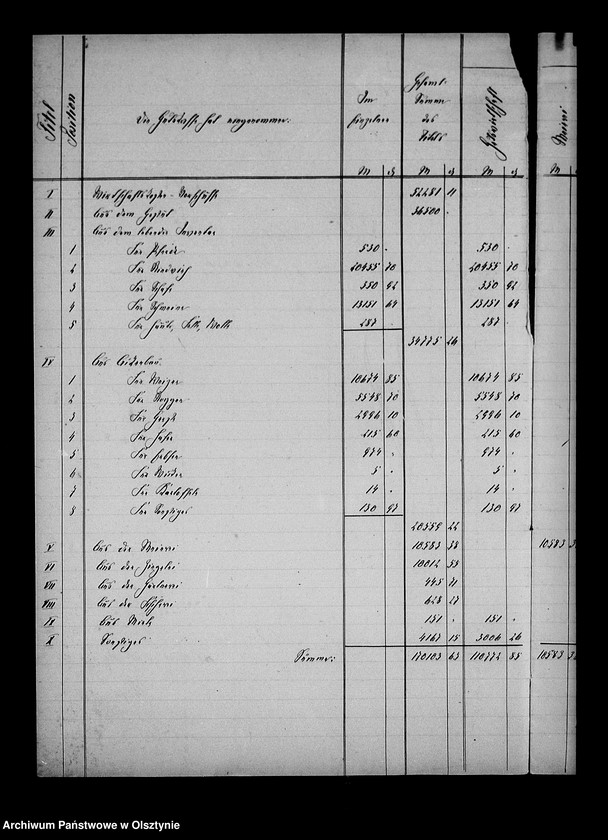 Titel
Position
Die Gutskasse hat eingenommen:
Im Einzelnen
Gesamt Summe des Titels
M ₰ M ₰ M ₰ M
I Wirtschaftskasse-Vorschüsse 52281 11
II Aus dem Gestüt 36500 .
III Aus dem lebenden Inventar
1 Für Pferde 530 . 530 .
2 Für Rindvieh 20455 70 20455 70
3 Für Schafe 350 92 350 92
4 Für Schweine 13151 64 13151 64
5 Für Häute, Felle, Wolle 287 . 287 .
34775 26
IV Aus Ackerbau.
1 Für Weizen 10674 85 10674 85
2 Für Roggen 5548 70 5548 70
3 Für Gerste 2996 10 2996 10
4 Für Hafer 215 60 215 60
5 Für Erbsen 974 . 974 .
6 Für 5 . 5 .
7 Für Kartoffeln 14 . 14 .
8 Für Sonstiges 130 97 130 97
20559 22
V Aus der Meierei 10583 38 10583
VI Aus der Ziegelei 10012 53
VII Aus der Gärtnerei 445 71
VIII Aus der Fischerei 628 27
IX Aus 151 . 151 .
X Sonstiges 4167 15 3006 26
Summe: 170103 63 110772 85 10583
Archiwum Państwowe w Olsztynie